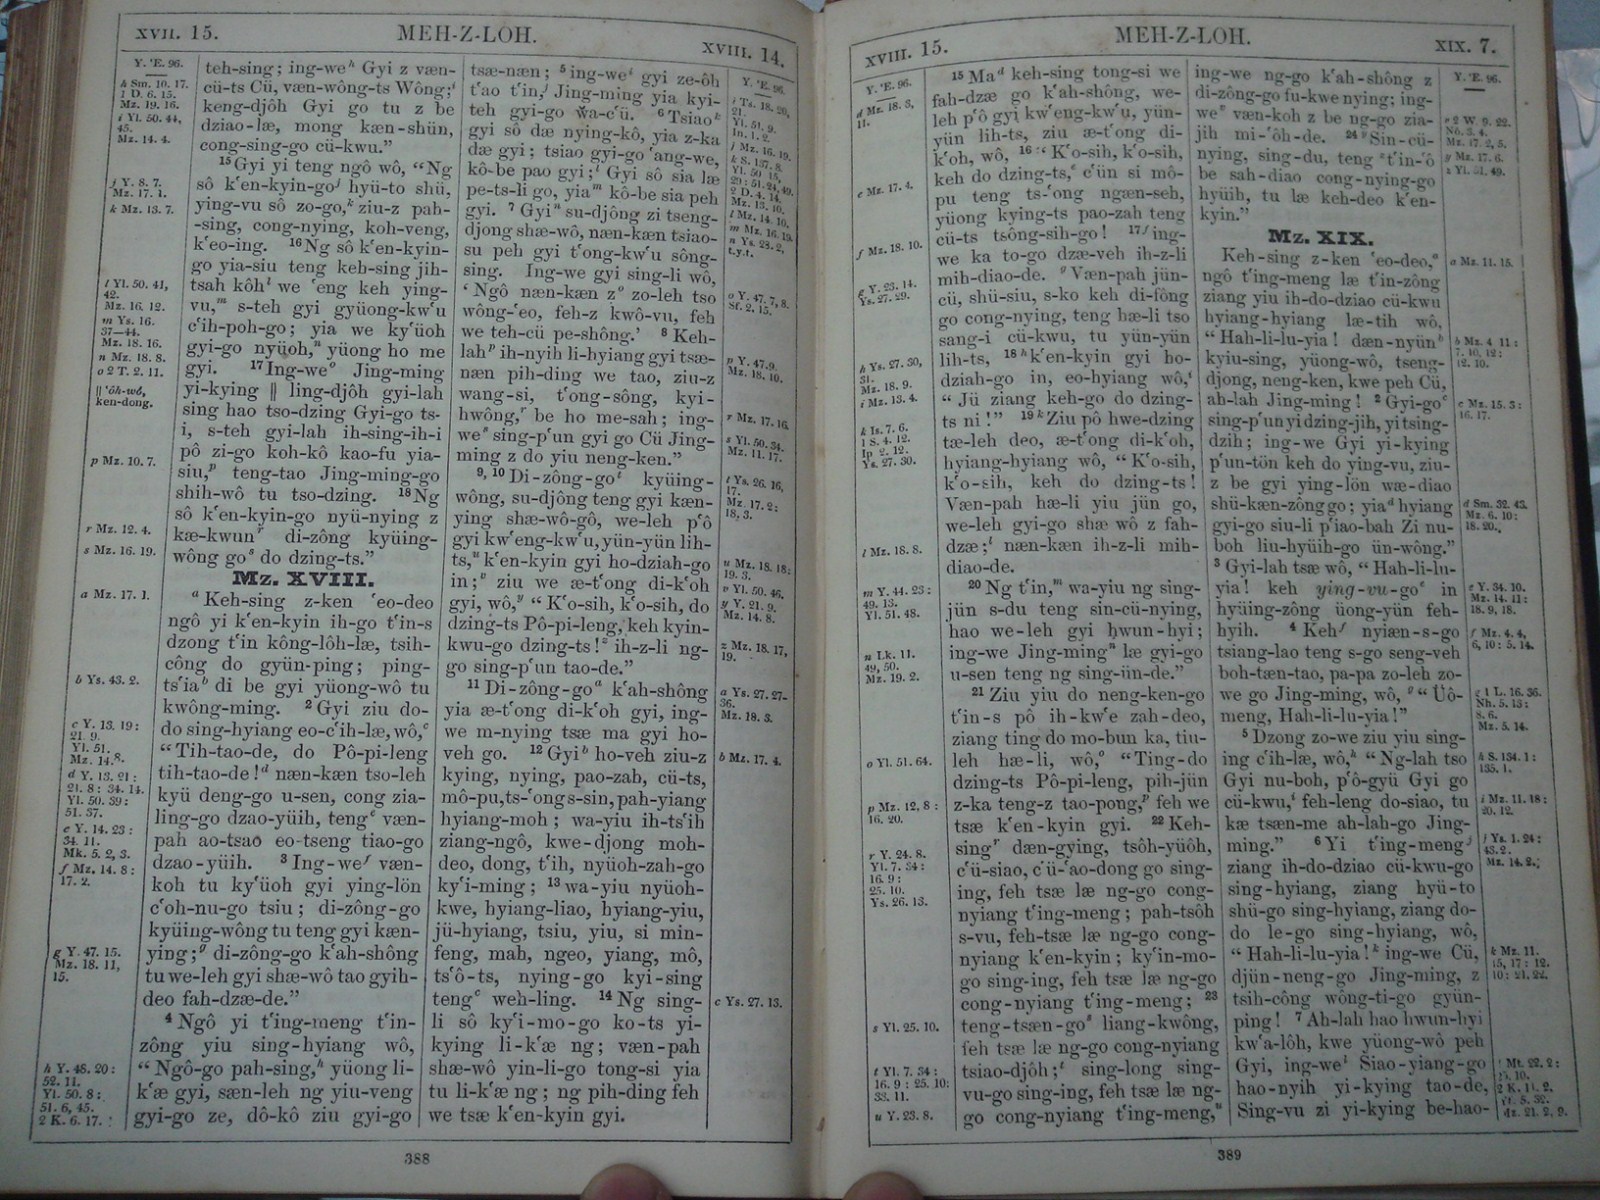 XVII. 15.
MEH-Z-LOH.
XVIII. 14.
Y. 'E. 96.
h Sm. 10. 17.
1 D. 6. 15.
Mz. 19. 16.
i Yl. 50. 44,
45.
Mz. 14. 4.
j Y. 8. 7.
Mz. 17. 1.
k Mz. 13. 7.
l Yl. 50. 41,
42.
Mz. 16. 12.
m Ys. 16.
37—44.
Mz. 18. 16.
n Mz. 18. 8.
o 2 T. 2. 11.
‖ 'ôh-wô,
ken-dong.
p Mz. 10. 7.
r Mz. 12. 4.
s Mz. 16. 19.
a Mz. 17. 1.
b Ys. 43. 2.
c Y. 13. 19:
21. 9.
Yl. 51.
Mz. 14. 8.
d Y. 13. 21:
21. 8: 34. 14.
Yl. 50. 39:
51. 37.
e Y. 14. 23:
34. 11.
Mk. 5. 2, 3.
f Mz. 14. 8:
17. 2.
g Y. 47. 15.
Mz. 18. 11,
15.
h Y. 48. 20:
52. 11.
Yl. 50. 8:
51. 6, 45.
2 K. 6. 17.
teh-sing; ing-weʰ Gyi z væn-
cü-ts Cü, væn-wông-ts Wông;ⁱ
keng-djôh Gyi go tu z be
dziao-læ, mong kæn-shün,
cong-sing-go cü-kwu.”
¹⁵Gyi yi teng ngô wô, “Ng
sô k'en-kyin-goʲ hyü-to shü,
ying-vu sô zo-go,ᵏ ziu-z pah-
-sing, cong-nying, koh-veng,
k'eo-ing. ¹⁶Ng sô k'en-kyin-
go yia-siu teng keh-sing jih-
tsah kôhˡ we 'eng keh ying-
vu,ᵐ s-teh gyi gyüong-kw'u
c'ih-poh-go; yia we ky'üoh
gyi-go nyüoh,ⁿ yüong ho me
gyi. ¹⁷Ing-weᵒ Jing-ming
yi-kying ‖ ling-djôh gyi-lah
sing hao tso-dzing Gyi-go ts-
i, s-teh gyi-lah ih-sing-ih-i
pô zi-go koh-kô kao-fu yia-
siu,ᵖ teng-tao Jing-ming-go
shih-wô tu tso-dzing. ¹⁸Ng
sô k'en-kyin-go nyü-nying z
kæ-kwunʳ di-zông kyüing-
wông goˢ do dzing-ts.”
Mz. XVIII.
ᵃ Keh-sing z-ken 'eo-deo
ngô yi k'en-kyin ih-go t'in-s
dzong t'in kông-lôh-læ, tsih-
công do gyün-ping; ping-
ts'iaᵇ di be gyi yüong-wô tu
kwông-ming. ²Gyi ziu do-
do sing-hyiang eo-c'ih-læ, wô,ᶜ
“Tih-tao-de, do Pô-pi-leng
tih-tao-de!ᵈ næn-kæn tso-leh
kyü deng-go u-sen, cong zia-
ling-go dzao-yüih, tengᵉ væn-
pah ao-tsao eo-tseng tiao-go
dzao-yüih. ³Ing-weᶠ væn-
koh tu ky'üoh gyi ying-lön
c'oh-nu-go tsiu; di-zông-go
kyüing-wông tu teng gyi kæn-
ying;ᵍ di-zông-go k'ah-shông
tu we-leh gyi shæ-wô tao gyih-
deo fah-dzæ-de.”
⁴Ngô yi t'ing-meng t'in-
zông yiu sing-hyiang wô,
“Ngô-go pah-sing,ʰ yüong li-
k'æ gyi, sæn-leh ng yiu-veng
gyi-go ze, dô-kô ziu gyi-go
tsæ-næn; ⁵ing-weⁱ gyi ze-ôh
t'ao t'in,ʲ Jing-ming yia kyi-
teh gyi-go wa-c'ü. ⁶Tsiaoᵏ
gyi sô dæ nying-kô, yia z-ka
dæ gyi; tsiao gyi-go 'ang-we,
kô-be pao gyi;ˡ Gyi sô sia læ
pe-ts-li go, yiaᵐ kô-be sia peh
gyi. ⁷Gyiⁿ su-djông zi tseng-
djong shæ-wô, næn-kæn tsiao-
su peh gyi t'ong-kw'u sông-
sing. Ing-we gyi sing-li wô,
‘Ngô næn-kæn zᵒ zo-leh tso
wông-'eo, feh-z kwô-vu, feh
we teh-cü pe-shông.’ ⁸Keh-
lahᵖ ih-nyih li-hyiang gyi tsæ-
næn pih-ding we tao, ziu-z
wang-si, t'ong-sông, kyi-
hwông,ʳ be ho me-sah; ing-
weˢ sing-p'un gyi go Cü Jing-
ming z do yiu neng-ken.”
⁹,¹⁰Di-zông-goᵗ kyüing-
wông, su-djông teng gyi kæn-
ying shæ-wô-gô, we-leh p'ô
gyi kw'eng-kw'u, yün-yün lih-
ts,ᵘ k'en-kyin gyi ho-dziah-go
in;ᵛ ziu we æ-t'ong di-k'oh
gyi, wô,ʸ “K'o-sih, k'o-sih, do
dzing-ts Pô-pi-leng, keh kyin-
kwu-go dzing-ts!ᶻ ih-z-li ng-
go sing-p'un tao-de.”
¹¹Di-zông-goᵃ k'ah-shông
yia æ-t'ong di-k'oh gyi, ing-
we m-nying tsæ ma gyi ho-
veh go. ¹²Gyiᵇ ho-veh ziu-z
kying, nying, pao-zah, cü-ts,
mô-pu, ts-'ong s-sin, pah-yiang
hyiang-moh; wa-yiu ih-ts'ih
ziang-ngô, kwe-djong moh-
deo, dong, t'ih, nyüoh-zah-go
ky'i-ming; ¹³wa-yiu nyüoh-
kwe, hyiang-liao, hyiang-yiu,
jü-hyiang, tsiu, yiu, si min-
feng, mah, ngeo, yiang, mô,
ts'ô-ts, nying-go kyi-sing
tengᶜ weh-ling. ¹⁴Ng sing-
li sô ky'i-mo-go ko-ts yi-
kying li-k'æ ng; væn-pah
shæ-wô yin-li-go tong-si yia
tu li-k'æ ng; ng pih-ding feh
we tsæ k'en-kyin gyi.
Y. 'E. 96.
j Mz. 16. 19.
k S. 137. 8.
Yl. 50. 15,
29: 51. 24, 49.
2 D. 4. 14.
Mz. 13. 10.
l Mz. 14. 10.
m Mz. 16. 19.
n Ys. 28. 2,
t.y.t.
o Y. 47. 7, 8.
Sf. 2. 15.
p Y. 47. 9.
Mz. 18. 10.
r Mz. 17. 16.
s Yl. 50. 34.
Mz. 11. 17.
t Ys. 26. 16,
17.
Mz. 17. 2:
18. 3.
u Mz. 18. 18:
19. 3.
v Yl. 50. 46.
y Y. 21. 9.
Mz. 14. 8.
z Mz. 18. 17,
19.
a Ys. 27. 27-
36.
Mz. 18. 3.
b Mz. 17. 4.
c Ys. 27. 13.
388
XVIII. 15.
MEH-Z-LOH.
XIX. 7.
Y. 'E. 96.
d Mz. 18. 3,
11.
e Mz. 17. 4.
f Mz. 18. 10.
g Y. 23. 14.
Ys. 27. 29.
h Ys. 27. 30,
31.
Mz. 18. 9.
i Mz. 13. 4.
k Is. 7. 6.
1 S. 4. 12.
Ip 2. 12.
Ys. 27. 30.
l Mz. 18. 8.
m Y. 44. 23:
49. 13.
Yl. 51. 48.
n Lk. 11.
49, 50.
Mz. 19. 2.
o Yl. 51. 64.
p Mz. 12. 8:
16. 20.
r Y. 24. 8.
Yl. 7. 34:
16. 9:
25. 10.
Ys. 26. 13.
s Yl. 25. 10.
t Yl. 7. 34:
16. 9: 25. 10:
33. 11.
u Y. 23. 8.
¹⁵Maᵈ keh-sing tong-si we
fah-dzæ go k'ah-shông, we-
leh p'ô gyi kw'eng-kw'u, yün-
yün lih-ts, ziu æ-t'ong di-
k'oh, wô, ¹⁶“K'o-sih, k'o-sih,
keh do dzing-ts,ᵉ c'ün si mô-
pu teng ts-'ong ngæn-seh,
yüong kying-ts pao-zah teng
cü-ts tsông-sih-go! ¹⁷ᶠing-
we ka to-go dzæ-veh ih-z-li
mih-diao-de. ᵍVæn-pah jün-
cü, shü-siu, s-ko keh di-fông
go cong-nying, teng hæ-li tso
sang-i cü-kwu, tu yün-yün
lih-ts, ¹⁸ʰk'en-kyin gyi ho-
dziah-go in, eo-hyiang wô,ⁱ
“Jü ziang keh-go do dzing-
ts ni!” ¹⁹ᵏZiu pô hwe-dzing
tæ-leh deo, æ-t'ong di-k'oh,
hyiang-hyiang wô, “K'o-sih,
k'o-sih, keh do dzing-ts!
Væn-pah hæ-li yiu jün go,
we-leh gyi-go shæ wô z fah-
dzæ;ˡ næn-kæn ih-z-li mih-
diao-de.
²⁰Ng t'in,ᵐ wa-yiu ng sing-
jün s-du teng sin-cü-nying,
hao we-leh gyi hwun-hyi;
ing-we Jing-mingⁿ læ gyi-go
u-sen teng ng sing-ün-de.”
²¹Ziu yiu do neng-ken-go
t'in-s pô ih-kw'e zah-deo,
ziang ting do mo-bun ka, tiu-
leh hæ-li, wô,ᵒ “Ting-do
dzing-ts Pô-pi-leng, pih-jün
z-ka teng-z tao-pong,ᵖ feh we
tsæ k'en-kyin gyi. ²²Keh-
singʳ dæn-gying, tsôh-yüôh,
c'ü-siao, c'ü-'ao-dong go sing-
ing, feh tsæ læ ng-go cong-
nyiang t'ing-meng; pah-tsôh
s-vu, feh-tsæ læ ng-go cong-
nyiang k'en-kyin; ky'in-mo-
go sing-ing, feh tsæ læ ng-go
cong-nyiang t'ing-meng; ²³
teng-tsæn-goˢ liang-kwông,
feh tsæ læ ng-go cong-nyiang
tsiao-djôh;ᵗ sing-long sing-
vu-go sing-ing, feh tsæ læ ng-
go cong-nyiang t'ing-meng,ᵘ
ing-we ng-go k'ah-shông z
di-zông-go fu-kwe nying; ing-
weᵛ væn-koh z be ng-go zia-
jih mi-'ôh-de. ²⁴ʸSin-cü-
nying, sing-du, teng ᶻt'in-'ô
be sah-diao cong-nying-go
hyüih, tu læ keh-deo k'en-
kyin.”
Mz. XIX.
Keh-sing z-ken 'eo-deo,ᵃ
ngô t'ing-meng læ t'in-zông
ziang yiu ih-do-dziao cü-kwu
hyiang-hyiang læ-tih wô,
“Hah-li-lu-yia! dæn-nyünᵇ
kyiu-sing, yüong-wô, tseng-
djong, neng-ken, kwe peh Cü,
ah-lah Jing-ming! ²Gyi-goᶜ
sing-p'un yi dzing-jih, yi tsing-
dzih; ing-we Gyi yi-kying
p'un-tön keh do ying-vu, ziu-
z be gyi ying-lön wæ-diao
shü-kæn-zông go; yiaᵈ hyiang
gyi-go siu-li p'iao-bah Zi nu-
boh liu-hyüih-go ün-wông.”
³Gyi-lah tsæ wô, “Hah-li-lu-
yia! keh ying-vu-goᵉ in
hyüing-zông üong-yün feh-
hyih. ⁴Kehᶠ nyiæn-s-go
tsiang-lao teng s-go seng-veh
boh-tæn-tao, pa-pa zo-leh zo-
we go Jing-ming, wô, ᵍ“Üô-
meng, Hah-li-lu-yia!”
⁵Dzong zo-we ziu yiu sing-
ing c'ih-læ, wô,ʰ “Ng-lah tso
Gyi nu-boh, p'ô-gyü Gyi go
cü-kwu,ⁱ feh-leng do-siao, tu
kæ tsæn-me ah-lah-go Jing-
ming.” ⁶Yi t'ing-mengʲ
ziang ih-do-dziao cü-kwu-go
sing-hyiang, ziang hyü-to
shü-go sing-hyiang, ziang do-
do le-go sing-hyiang, wô,
“Hah-li-lu-yia!ᵏ ing-we Cü,
djün-neng-go Jing-ming, z
tsih-công wông-ti-go gyün-
ping! ⁷Ah-lah hao hwun-hyi
kw'a-lôh, kwe yüong-wô peh
Gyi, ing-weˡ Siao-yiang-go
hao-nyih yi-kying tao-de,
Sing-vu zi yi-kying be-hao-
Y. 'E. 96.
v 2 W. 9. 22.
Nh. 3. 4.
Mz. 17. 2, 5.
y Mz. 17. 6.
z Yl. 51. 49.
a Mz. 11. 15.
b Mz. 4. 11:
7. 10, 12:
12. 10.
c Mz. 15. 3:
16. 17.
d Sm. 32. 43.
Mz. 6. 10:
18. 20.
e Y. 34. 10.
Mz. 14. 11:
18. 9, 18.
f Mz. 4. 4,
6, 10: 5. 14.
g 1 L. 16. 36.
Nh. 5. 13:
8. 6.
Mz. 5. 14.
h S. 134. 1:
135. 1.
i Mz. 11. 18:
20. 12.
j Ys. 1. 24:
43. 2.
Mz. 14. 2.
k Mz. 11.
15, 17: 12.
10: 21. 22.
389